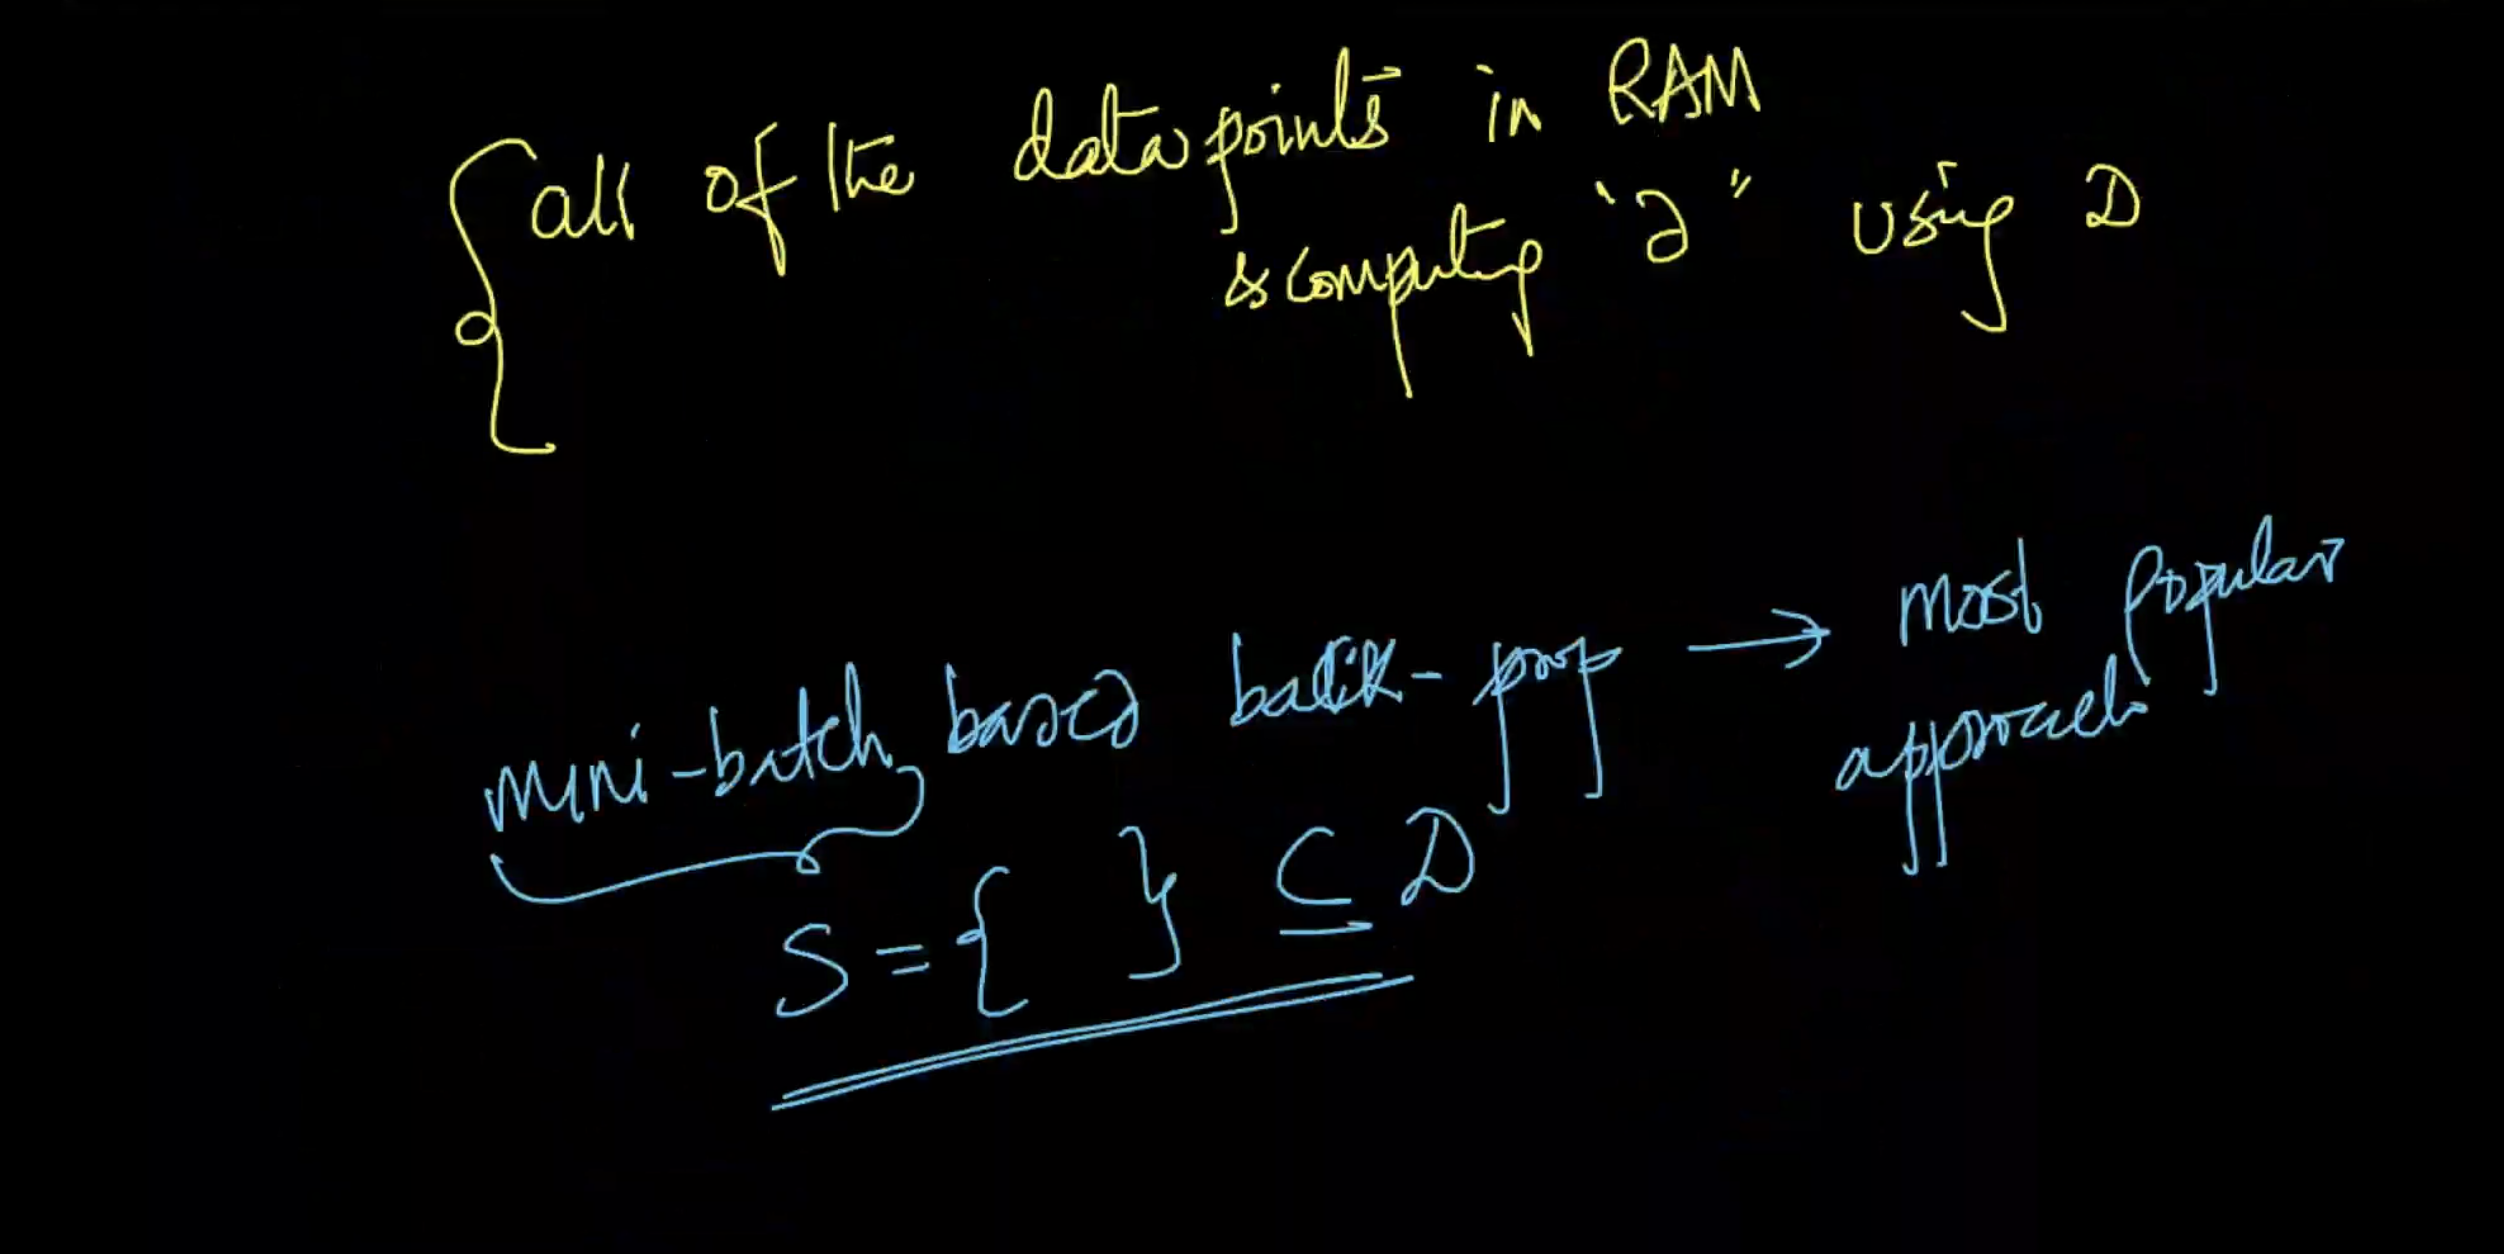 all of the data points in RAM
& computing "∂" using D
mini-batch based back-prop → most popular
approach
S = { } ⊆ D